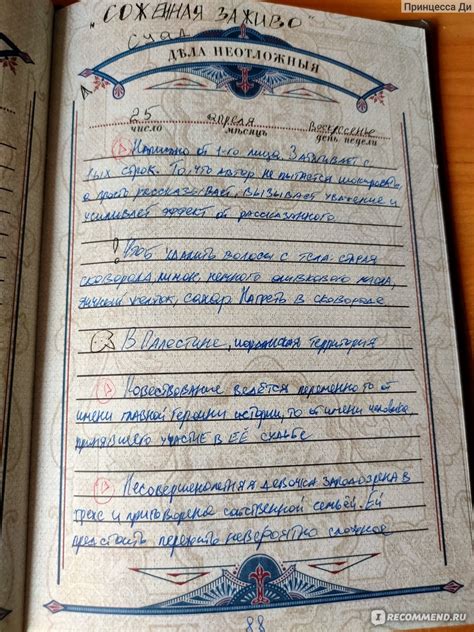 Принцесса Ди
"СОЖЖЕННАЯ ЗАЖИВО"
Суад
ДѢЛА НЕОТЛОЖНЫЯ
25 апреля Воскресенье
число мѣсяцъ день недели
Написано от 1-го лица. Затягивает с
вых строк. То, что автор не пытается шокировать,
а просто рассказывает, вызывает уважение и
усиливает эффект от рассказанного
Чтоб удалить волосы с тела: старая
сковорода, лимон, немного оливкового масла,
яичный желток, сахар. Нагреть в сковороде
В Палестине, территория
Повествование ведётся попеременно то от
имени главной героини истории, то от имени человека,
принявшего участие в ЕЁ судьбе
Несовершеннолетняя девочка заподозрена в
грехе и приговорена собственной семьёй. Ей
предстоить пережить невероятно сложное
88
IRECOMMEND.RU